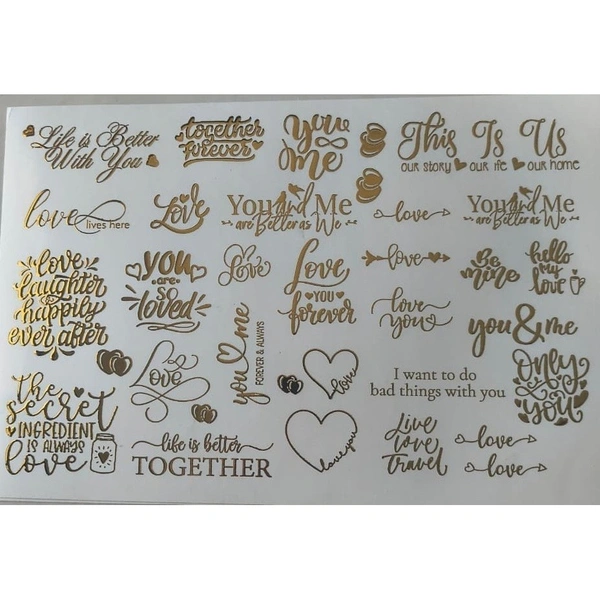 Life is Better
With You
together
forever
you
me
This Is Us
our story our life our home
love
lives here
Love
You and Me
are Better as We
love
You and Me
are Better as We
love
laughter
& happily
ever after
you
are
so
loved
love
Love
YOU
forever
love
Be
mine
hello
my
love
you me
FOREVER & ALWAYS
love
you
you & me
Love
love
I want to do
bad things with you
Only
you
the
secret
INGREDIENT
IS ALWAYS
love
life is better
TOGETHER
love you
Live
love
travel
love
love